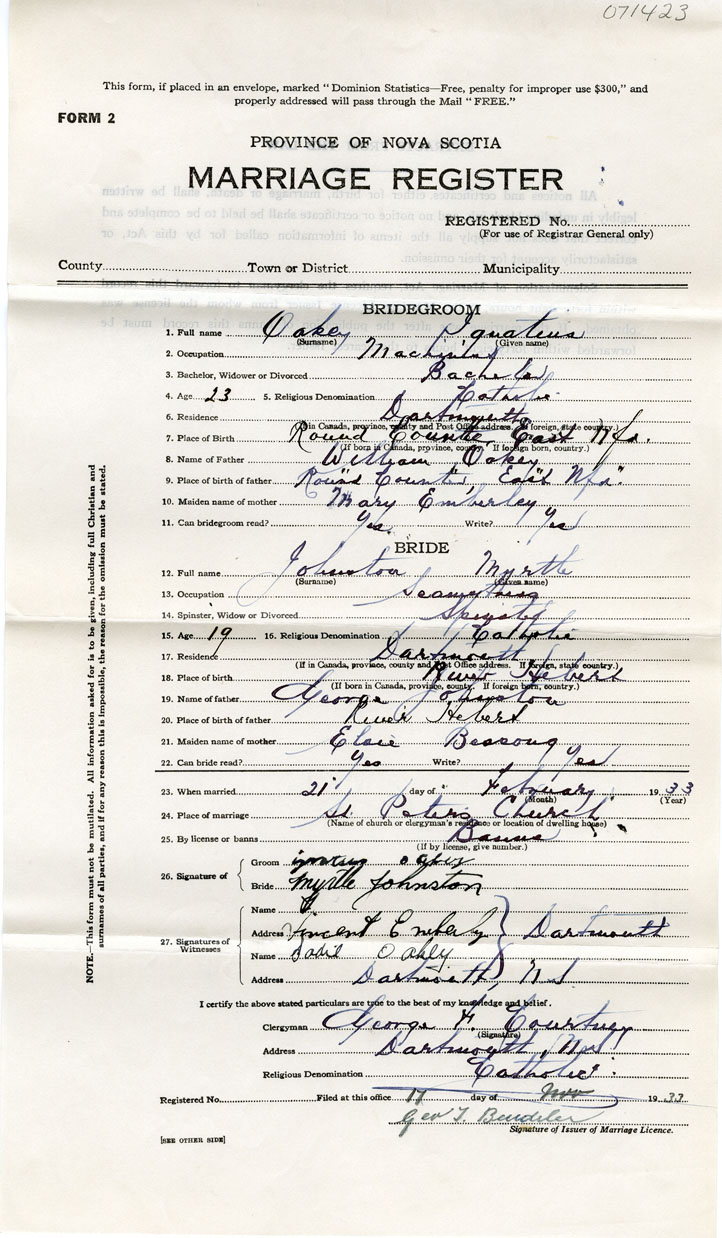 071423
This form, if placed in an envelope, marked "Dominion Statistics—Free, penalty for improper use $300," and
properly addressed will pass through the Mail "FREE."
FORM 2
PROVINCE OF NOVA SCOTIA
MARRIAGE REGISTER
REGISTERED No.
(For use of Registrar General only)
County Town or District Municipality
BRIDEGROOM
1. Full name Oakey Ignatius
(Surname) (Given name)
2. Occupation Machinist
3. Bachelor, Widower or Divorced Bachelor
4. Age 23 5. Religious Denomination Catholic
6. Residence Dartmouth
(If in Canada, province, county and Post Office address. If foreign, state country.)
7. Place of Birth Round East Nfd.
(If born in Canada, province, county. If foreign born, country.)
8. Name of Father William Oakey
9. Place of birth of father Round East Nfd.
10. Maiden name of mother Mary Emberley
11. Can bridegroom read? Yes Write? Yes
BRIDE
12. Full name Johnston Myrtle
(Surname) (Given name)
13. Occupation
14. Spinster, Widow or Divorced Spinster
15. Age 19 16. Religious Denomination Catholic
17. Residence Dartmouth
(If in Canada, province, county and Post Office address. If foreign, state country.)
18. Place of birth River Hebert
(If born in Canada, province, county. If foreign born, country.)
19. Name of father George Johnston
20. Place of birth of father River Hebert
21. Maiden name of mother Elsie
22. Can bride read? Yes Write? Yes
23. When married 21 day of February 1933
(Month) (Year)
24. Place of marriage St Peters Church
(Name of church or clergyman's residence or location of dwelling house)
25. By license or banns Banns
(If by license, give number.)
26. Signature of
Groom
Bride Myrtle Johnston
27. Signatures of Witnesses
Name
Address Vincent Emberly Dartmouth
Name Sadie Oakey
Address Dartmouth, N.S
I certify the above stated particulars are true to the best of my knowledge and belief.
Clergyman George F. Courtney
(Signature)
Address Dartmouth, N.S.
Religious Denomination Catholic
Registered No. Filed at this office 17 day of Nov 1933
Geo T.
Signature of Issuer of Marriage Licence.
[SEE OTHER SIDE]
NOTE.—This form must not be mutilated. All information asked for is to be given, including full Christian and
surnames of all parties, and if for any reason this is impossible, the reason for the omission must be stated.